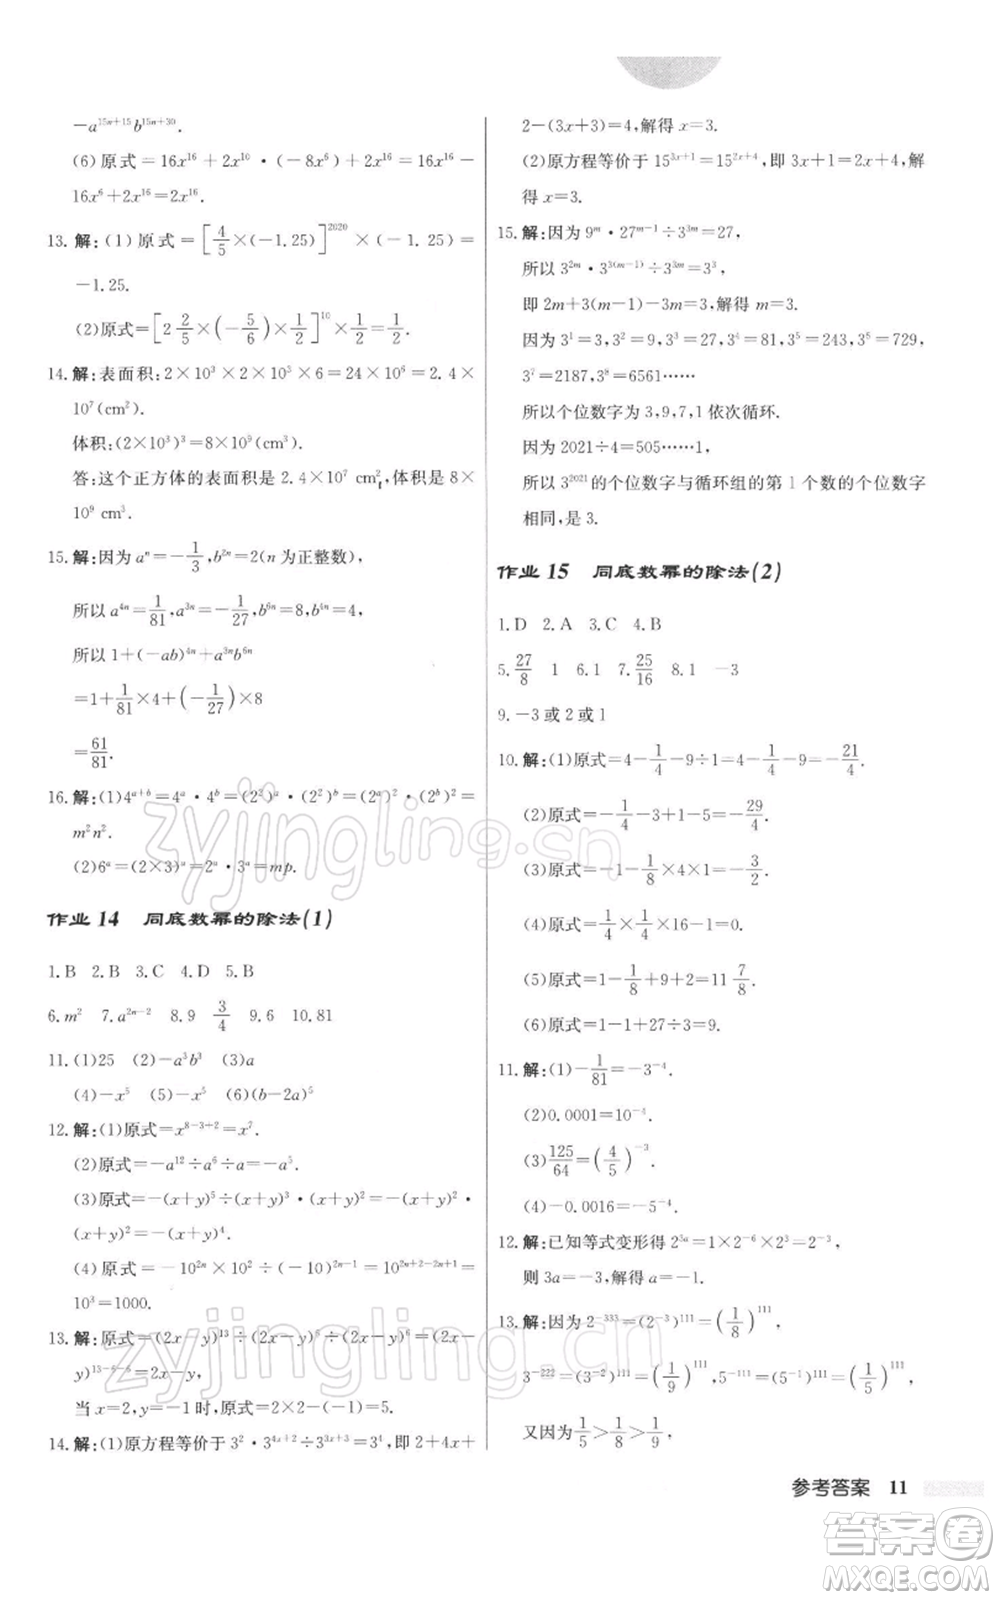 －a^{15n＋15}b^{15n＋30}.
(6)原式＝16x^{16}＋2x^{10}·(－8x^6)＝16x^{16}－
16x^6＋2x^{16}＝2x^{16}.
13.解:(1)原式＝[4/5×(－1.25)]^{2020}×(－1.25)＝
－1.25.
(2)原式＝[2 2/5×(－5/6)×1/2]^{10}×1/2＝1/2.
14.解:表面积:2×10^3×2×10^3×6＝24×10^6＝2.4×
10^7(cm^2).
体积:(2×10^3)^3＝8×10^9(cm^3).
答:这个正方体的表面积是2.4×10^7 cm^2,体积是8×
10^9 cm^3.
15.解:因为a^n＝－1/3,b^{2n}＝2(n为正整数),
所以a^{4n}＝1/81,a^{3n}＝－1/27,b^{6n}＝8,b^{4n}＝4,
所以1＋(－ab)^{4n}＋a^{3n}b^{6n}
＝1＋1/81×4＋(－1/27)×8
＝61/81.
16.解:(1)4^{a＋b}＝4^a·4^b＝(2^2)^a·(2^2)^b＝(2^a)^2·(2^b)^2＝
m^2n^2.
(2)6^a＝(2×3)^a＝2^a·3^a＝mp.
作业14 同底数幂的除法(1)
1.B 2.B 3.C 4.D 5.B
6.m^2 7.a^{2n－2} 8.9 3/4 9.6 10.81
11.(1)25 (2)－a^3b^3 (3)a
(4)－x^5 (5)－x^5 (6)(b－2a)^5
12.解:(1)原式＝x^{8－3＋2}＝x^7.
(2)原式＝－a^{12}÷a^6÷a＝－a^5.
(3)原式＝－(x＋y)^5÷(x＋y)^3·(x＋y)^2＝－(x＋y)^2·
(x＋y)^2＝－(x＋y)^4.
(4)原式＝－10^{2n}×10^2÷(－10)^{2n－1}＝10^{2n＋2－2n＋1}＝
10^3＝1000.
13.解:原式＝(2x－y)^{13}÷(2x－y)^6÷(2x－y)^6＝(2x－
y)^{13－6－6}＝2x－y,
当x＝2,y＝－1时,原式＝2×2－(－1)＝5.
14.解:(1)原方程等价于3^2·3^{4x＋2}÷3^{3x＋3}＝3^4,即2＋4x＋
2－(3x＋3)＝4,解得x＝3.
(2)原方程等价于15^{3x＋1}＝15^{2x＋4},即3x＋1＝2x＋4,解
得x＝3.
15.解:因为9^m·27^{m－1}÷3^{3m}＝27,
所以3^{2m}·3^{3(m－1)}÷3^{3m}＝3^3,
即2m＋3(m－1)－3m＝3,解得m＝3.
因为3^1＝3,3^2＝9,3^3＝27,3^4＝81,3^5＝243,3^6＝729,
3^7＝2187,3^8＝6561……
所以个位数字为3,9,7,1依次循环.
因为2021÷4＝505……1,
所以3^{2021}的个位数字与循环组的第1个数的个位数字
相同,是3.
作业15 同底数幂的除法(2)
1.D 2.A 3.C 4.B
5.27/8 1 6.1 7.25/16 8.1 －3
9.－3或2或1
10.解:(1)原式＝4－1/4－9÷1＝4－1/4－9＝－21/4.
(2)原式＝－1/4－3＋1－5＝－29/4.
(3)原式＝－1/4×4－1/8×4＝－1－1/2＝－3/2.
(4)原式＝1/4×1/4×16－1＝0.
(5)原式＝1－1/8＋9＋2＝11 7/8.
(6)原式＝1－1＋27÷3＝9.
11.解:(1)－1/81＝－3^{－4}.
(2)0.0001＝10^{－4}.
(3)125/64＝(4/5)^{－3}.
(4)－0.0016＝－5^{－4}.
12.解:已知等式变形得2^{3a}＝1×2^{－6}×2^3＝2^{－3},
则3a＝－3,解得a＝－1.
13.解:因为2^{－333}＝(2^{－3})^{111}＝(1/8)^{111},
3^{－222}＝(3^{－2})^{111}＝(1/9)^{111},5^{－111}＝(5^{－1})^{111}＝(1/5)^{111},
又因为1/5＞1/8＞1/9,
参考答案 11
zyjingling.cn
zyjingling.cn
答案卷
MXQE.COM